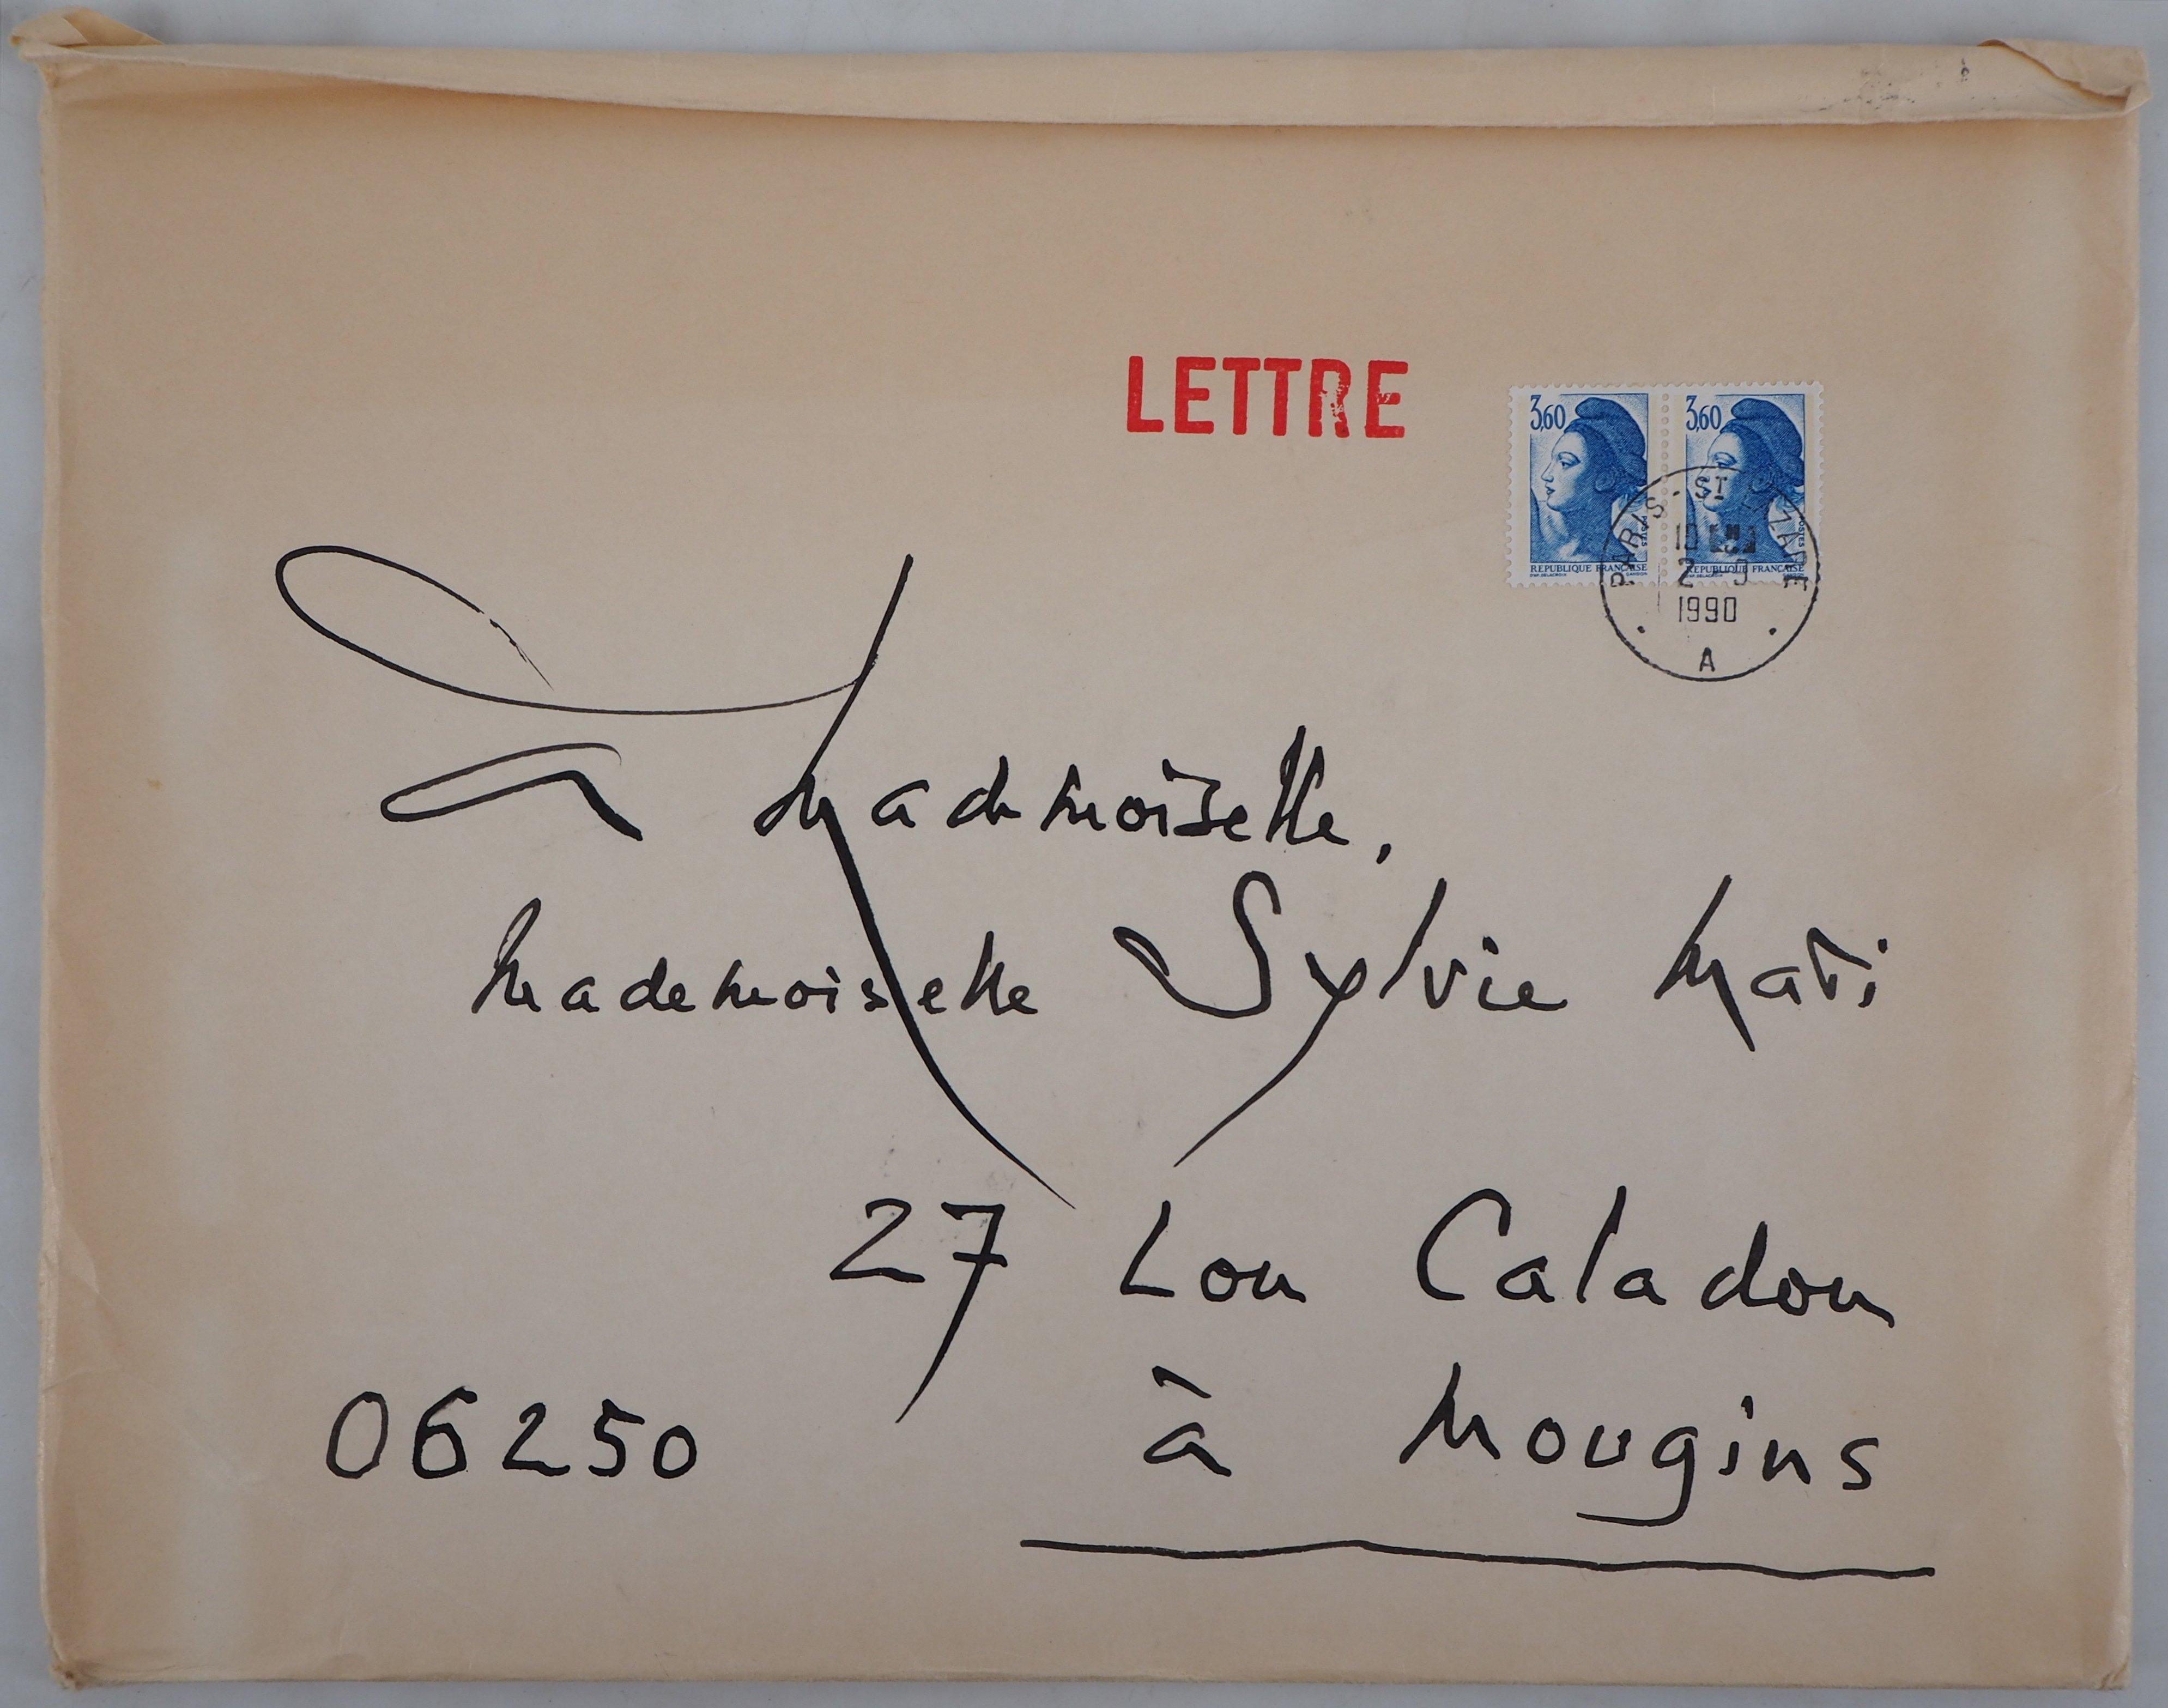 LETTRE
3,60 3,60
REPUBLIQUE FRANÇAISE REPUBLIQUE FRANÇAISE
PARIS - ST LAZARE
2 - 9
1990
A
Mademoiselle,
Mademoiselle Sylvie Mati
27 Lou Caladou
06250 à Mougins